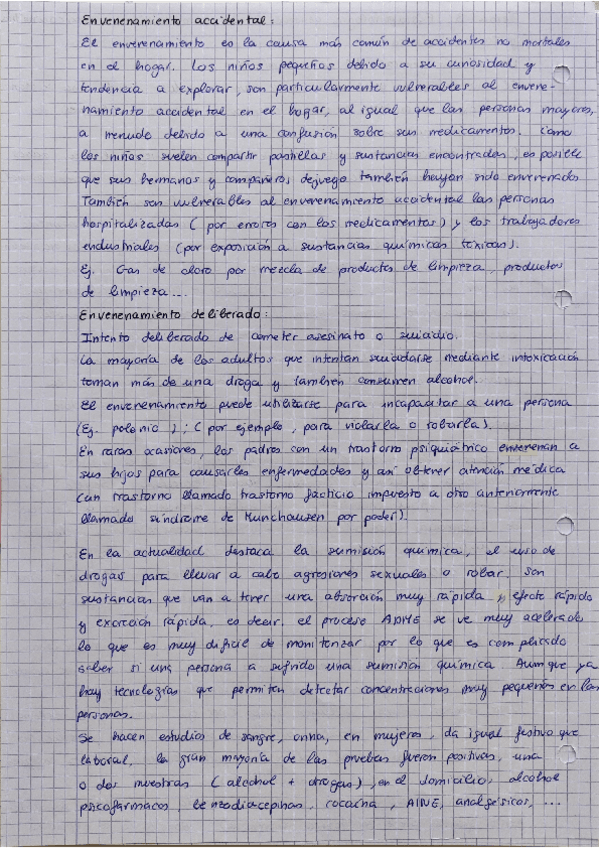 Envenenamiento accidental:
El envenenamiento es la causa más común de accidentes no mortales
en el hogar. Los niños pequeños debido a su curiosidad y
tendencia a explorar, son particularmente vulnerables al envene-
namiento accidental en el hogar, al igual que las personas mayores,
a menudo debido a una confusión sobre sus medicamentos. Como
los niños suelen compartir pastillas y sustancias encontradas, es posible
que sus hermanos y compañeros de juego también hayan sido envenenados
También son vulnerables al envenenamiento accidental las personas
hospitalizadas (por errores con los medicamentos) y los trabajadores
industriales (por exposición a sustancias químicas tóxicas).
Ej. Gas de cloro por mezcla de productos de limpieza, productos
de limpieza...
Envenenamiento deliberado:
Intento deliberado de cometer asesinato o suicidio.
La mayoría de los adultos que intentan suicidarse mediante intoxicación
toman más de una droga y también consumen alcohol.
El envenenamiento puede utilizarse para incapacitar a una persona
(Ej. polonio); (por ejemplo, para violarla o robarla).
En raras ocasiones, los padres con un trastorno psiquiátrico envenenan a
sus hijos para causarles enfermedades y así obtener atención médica
(un trastorno llamado trastorno facticio impuesto a otro anteriormente
llamado síndrome de Munchausen por poder).
En la actualidad destaca la sumisión química, el uso de
drogas para llevar a cabo agresiones sexuales o robar. Son
sustancias que van a tener una absorción muy rápida, efecto rápido
y excreción rápida, es decir, el proceso ADME se ve muy acelerado
lo que es muy difícil de monitorizar por lo que es complicado
saber si una persona a sufrido una sumisión química. Aunque ya
hay tecnologías que permiten detectar concentraciones muy pequeñas en las
personas.
Se hacen estudios de sangre, orina, en mujeres, da igual festivo que
laboral, la gran mayoría de las pruebas fueron positivas, una
o dos muestras (alcohol + drogas), en el domicilio, alcohol
psicofármacos, benzodiacepinas, cocaína, AINE, analgésicos, ...